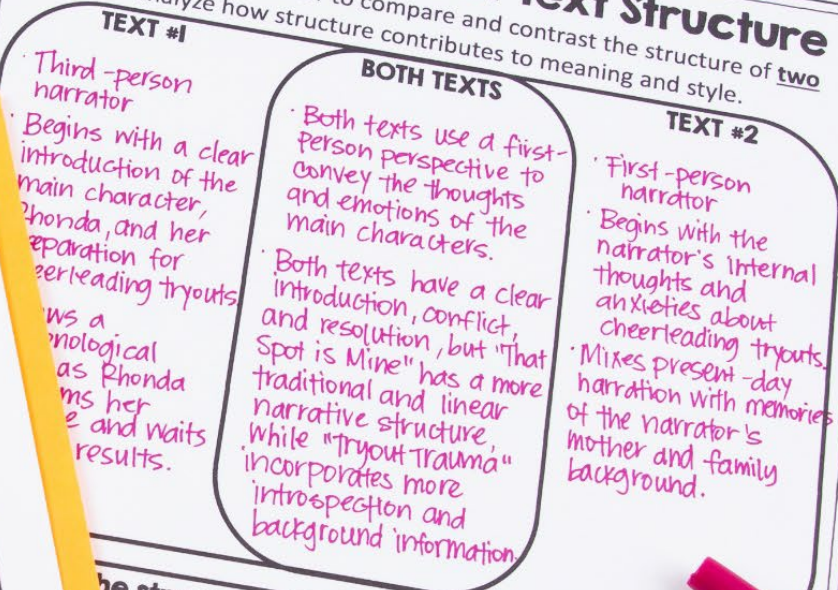 Text Structure
to compare and contrast the structure of two
how structure contributes to meaning and style.
TEXT #1
· Third-person
narrator
· Begins with a clear
introduction of the
main character,
Rhonda, and her
preparation for
cheerleading tryouts.
a
as Rhonda
her
and waits
results.
BOTH TEXTS
· Both texts use a first-
person perspective to
convey the thoughts
and emotions of the
main characters.
· Both texts have a clear
introduction, conflict,
and resolution, but "That
Spot is Mine" has a more
traditional and linear
narrative structure,
while "Tryout Trauma"
incorporates more
introspection and
background information.
TEXT #2
· First-person
narrator
· Begins with the
narrator's internal
thoughts and
anxieties about
cheerleading tryouts.
· Mixes present-day
narration with memories
of the narrator's
mother and family
background.